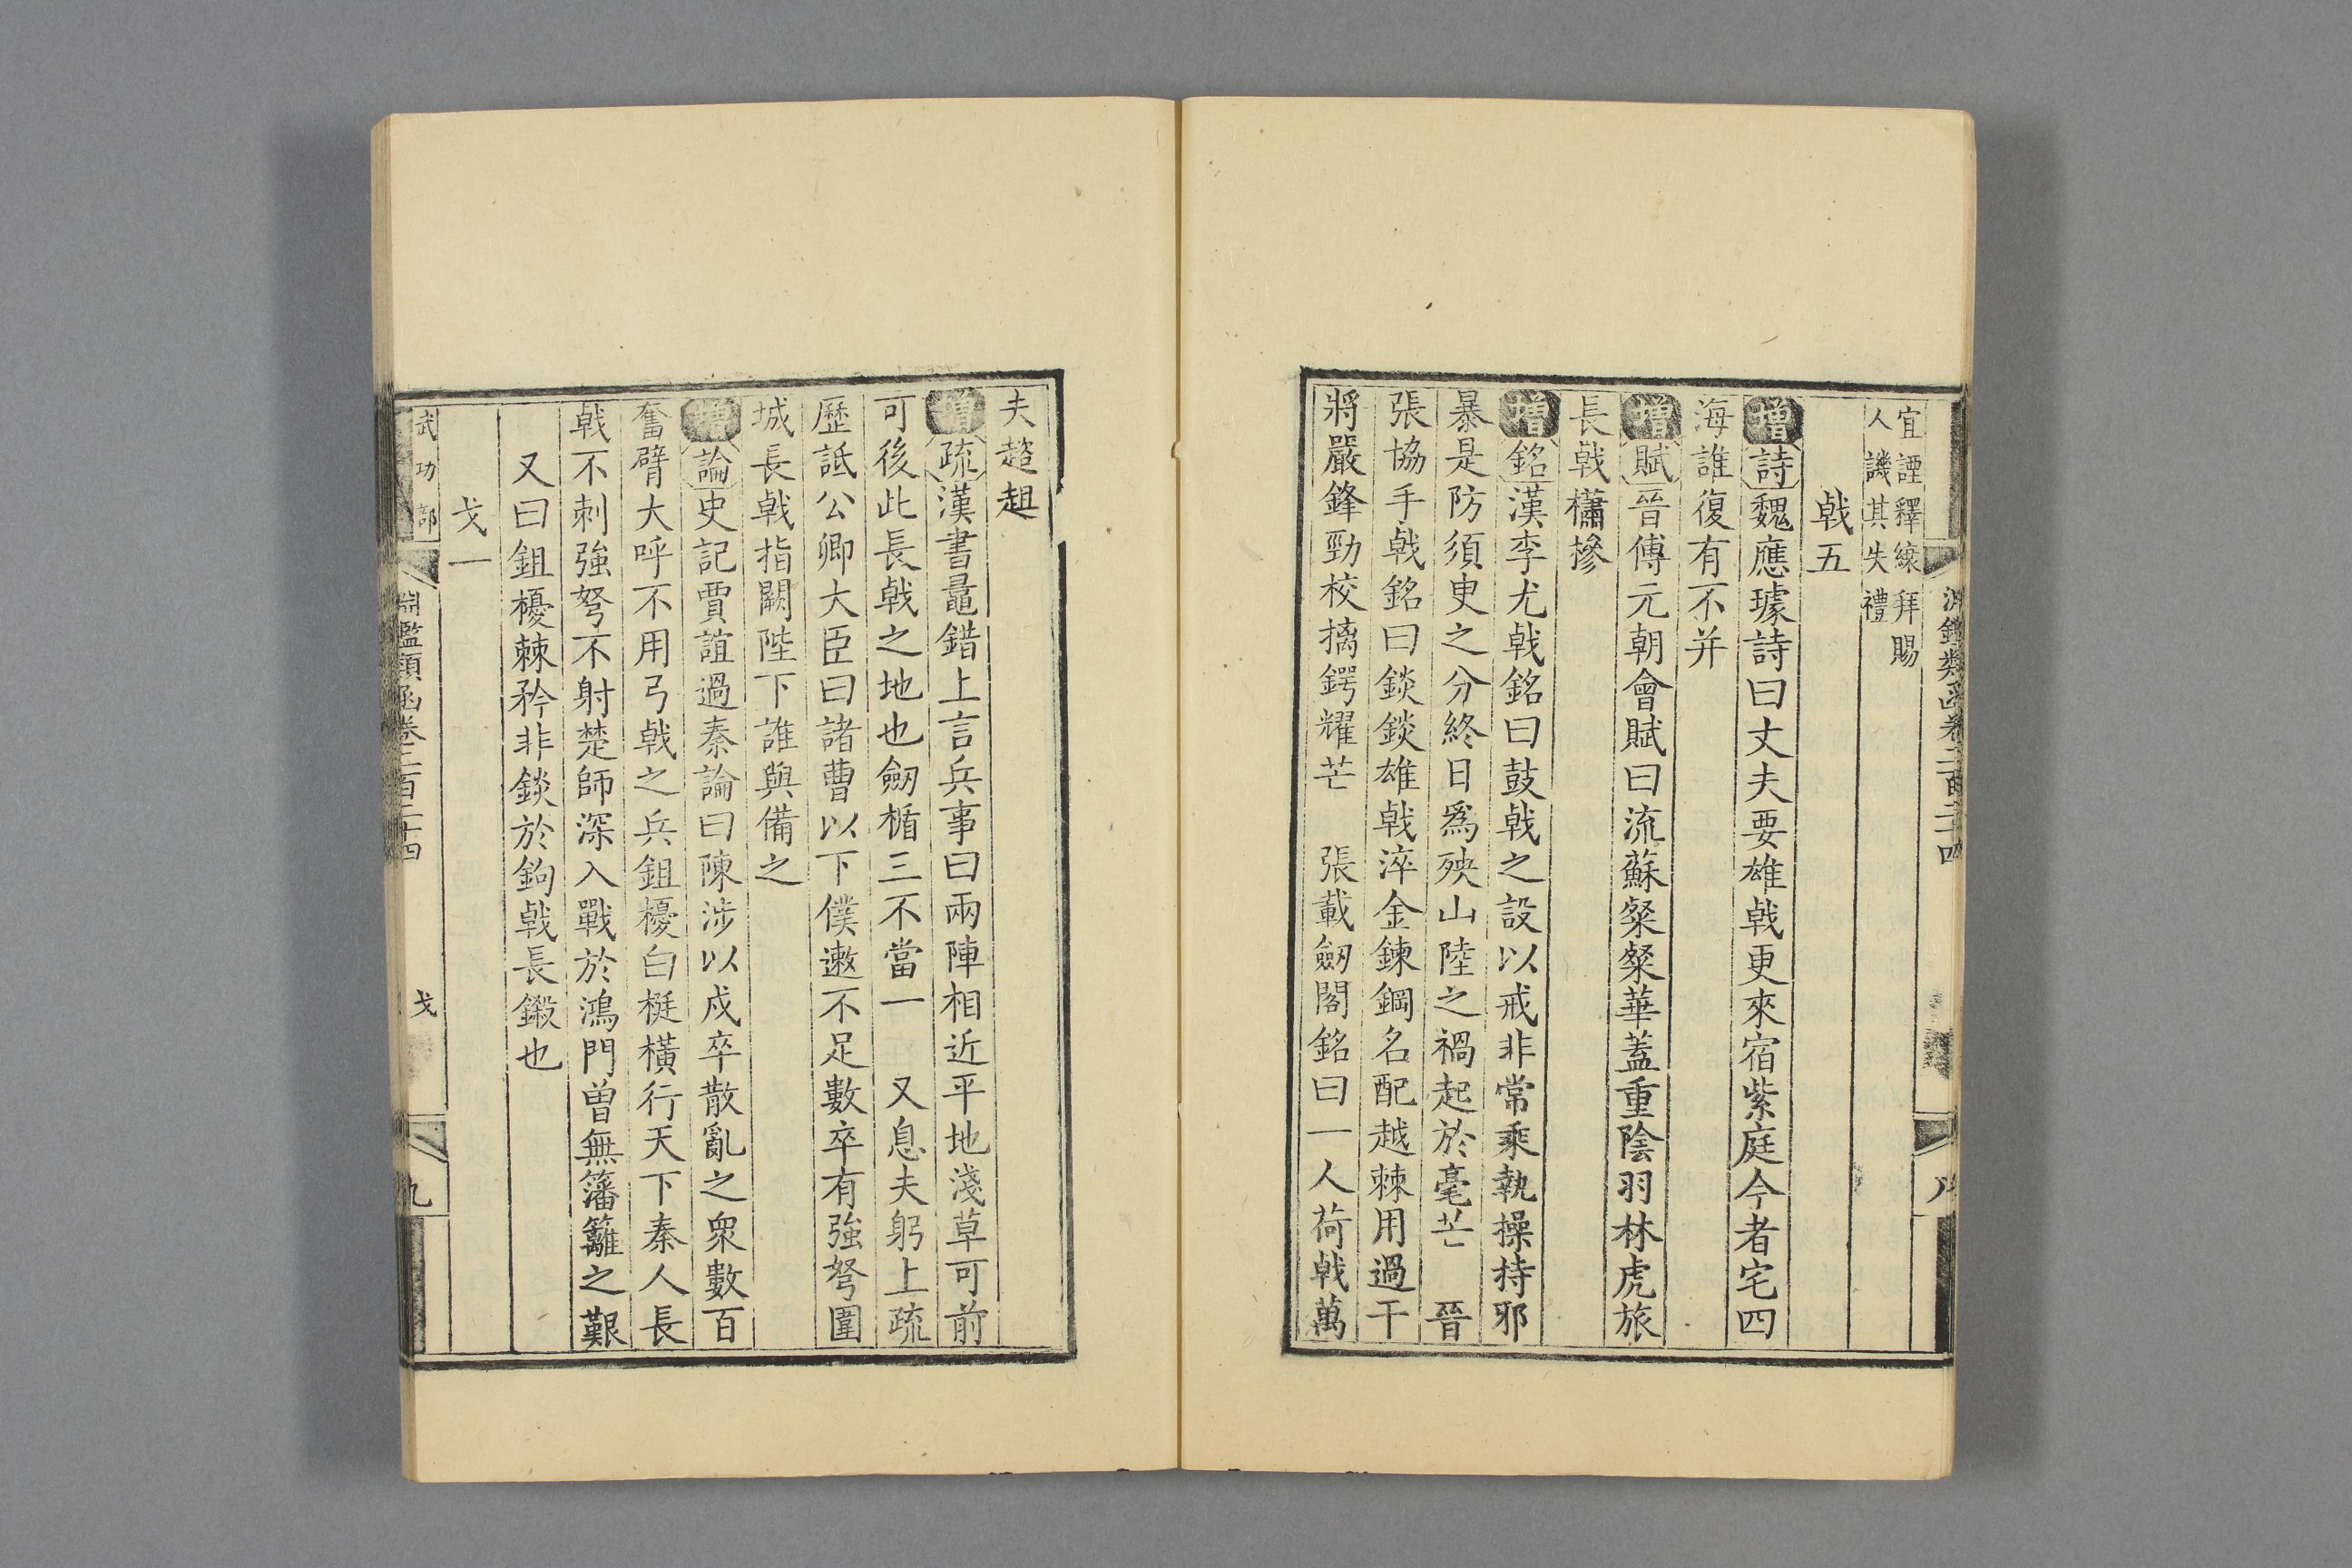 淵鑑類函卷二百二十四
八
宜譚釋縗拜賜
人譏其失禮
戟五
增詩魏應璩詩曰丈夫要雄戟更來宿紫庭今者宅四
海誰復有不并
增賦晉傅元朝會賦曰流蘇粲粲華蓋重陰羽林虎旅
長戟櫹摻
增銘漢李尤戟銘曰鼓戟之設以戒非常秉執操持邪
暴是防須臾之分終日爲殃山陸之禍起於毫芒　晉
張協手戟銘曰錟錟雄戟淬金鍊鋼名配越棘用過干
將嚴鋒勁校摛鍔耀芒　張載劒閣銘曰一人荷戟萬
夫趦趄
增疏漢書鼂錯上言兵事曰兩陣相近平地淺草可前
可後此長戟之地也劒楯三不當一　又息夫躬上疏
歷詆公卿大臣曰諸曹以下僕遬不足數卒有強弩圍
城長戟指闕陛下誰與備之
增論史記賈誼過秦論曰陳涉以戍卒散亂之衆數百
奮臂大呼不用弓戟之兵鉏櫌白梃橫行天下秦人長
戟不刺強弩不射楚師深入戰於鴻門曾無籓籬之艱
又曰鉏櫌棘矜非錟於鉤戟長鎩也
戈一
武功部
淵鑑類函卷二百二十四
戈
九